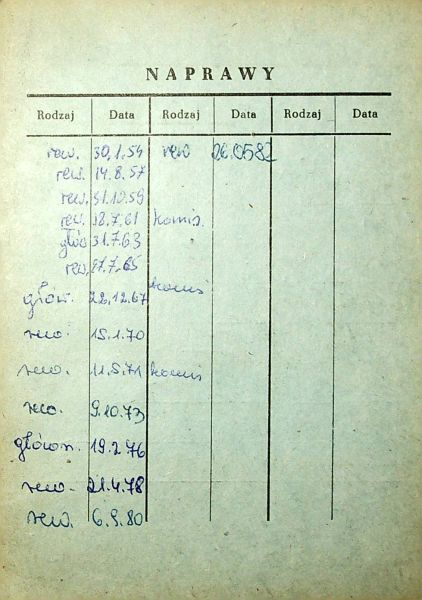 NAPRAWY
Rodzaj Data Rodzaj Data Rodzaj Data
rew. 30.1.54 rew 26.0582
rew. 14.8.57
rew. 31.10.59
rew. 18.7.61 komis.
głów 31.7.63
rew. 27.7.65
głów. 22.12.67 komis
rew. 15.1.70
rew. 11.5.71 komis
rew. 9.10.73
główn. 19.2.76
rew. 21.4.78
rew. 6.9.80